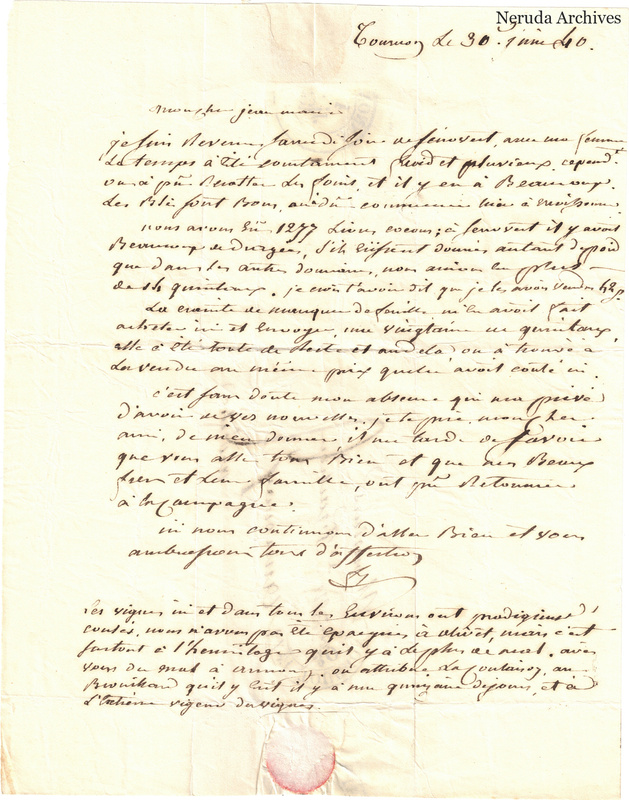 Neruda Archives
Tournon Le 30 juin 40.
mon cher jean marie
je suis Revenu Samedi Soir de Sénovert, avec ma femme
Le temps à Eté constament froid et pluvieux, cepend.
on à pu Recolter Les foins, et il y en à Beaucoup.
Les Blé sont Bons, on a dû commencer hier à moissonner
nous avons Eu 1277 Livres cocons; à Senovert il y avoit
Beaucoup de S'ils Eussent donnés autant de poid
que dans les autres domaines, nous aurions Eu plus
de 14 quinteaux. je crois t'avoir dit que je les avois vendus 42
La crainte de manquer de feuille m'en avoit fait
acheter ici et Envoyer, une vingtaine de quinteaux,
elle à Eté toute de Reste et audela on à trouvé à
La vendre au même prix quelle avoit couté ici.
c'est sans doute mon absence qui ma privé
d'avoir de vos nouvelles. je te prie mon cher
ami, de m'en donner il me tarde de Savoir
que vous allez tous Bien et que mes Beaux
freres et Leur famille, ont pu Retourner
à la Campagne.
ici nous continuons d'aller Bien et vous
embrassons tous d'affection
Les vignes ici et dans tous les Environs ont prodigieusement
coulés, nous n'avons pas Eté Epargnés à olivet, mais c'est
surtout à l'hermitage qu'il y à le plus de mal. avez
vous du mal à on attribue La coulaison, au
Brouillard qu'il y Eut il y à une quinzaine de jours, et à
L'Extrême vigeur des vignes.